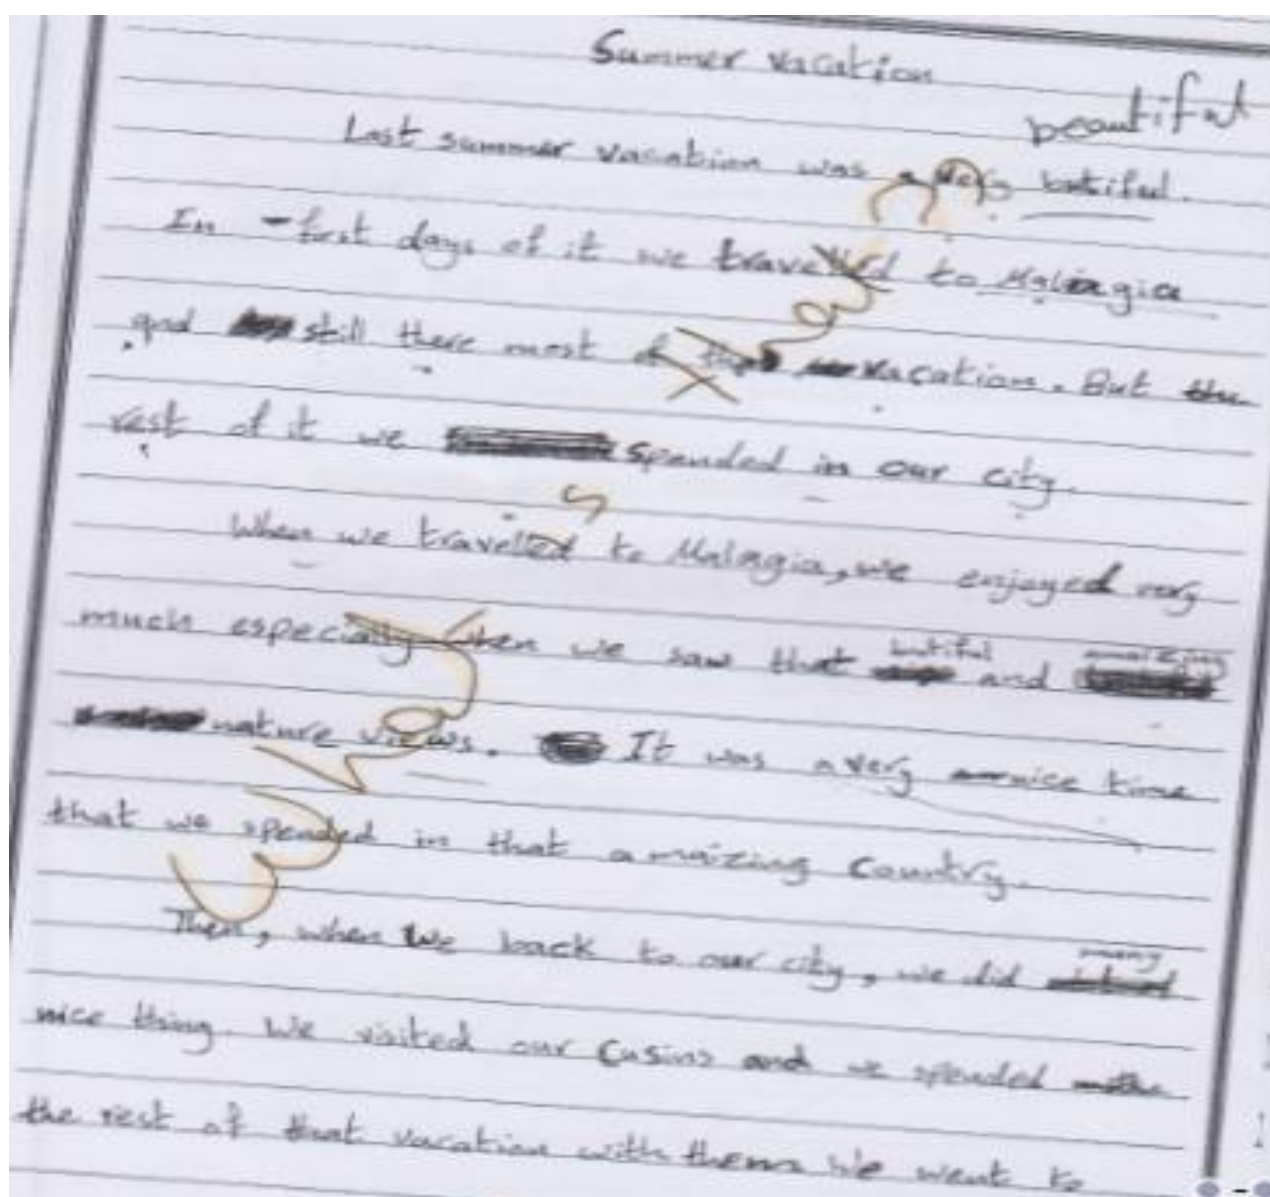 Summer vacation
beautiful
Last summer vacation was a very butiful.
In first days of it we travelled to Malagia
and still there most of the vacation. But the
rest of it we spended in our city.
When we travelled to Malagia, we enjoyed very
much especially when we saw that butiful and amaizing
nature views. It was a very nice time
that we spended in that amaizing Country.
Then, when we back to our city, we did many
nice thing. We visited our Cusins and we spended
the rest of that vacation with them We went to